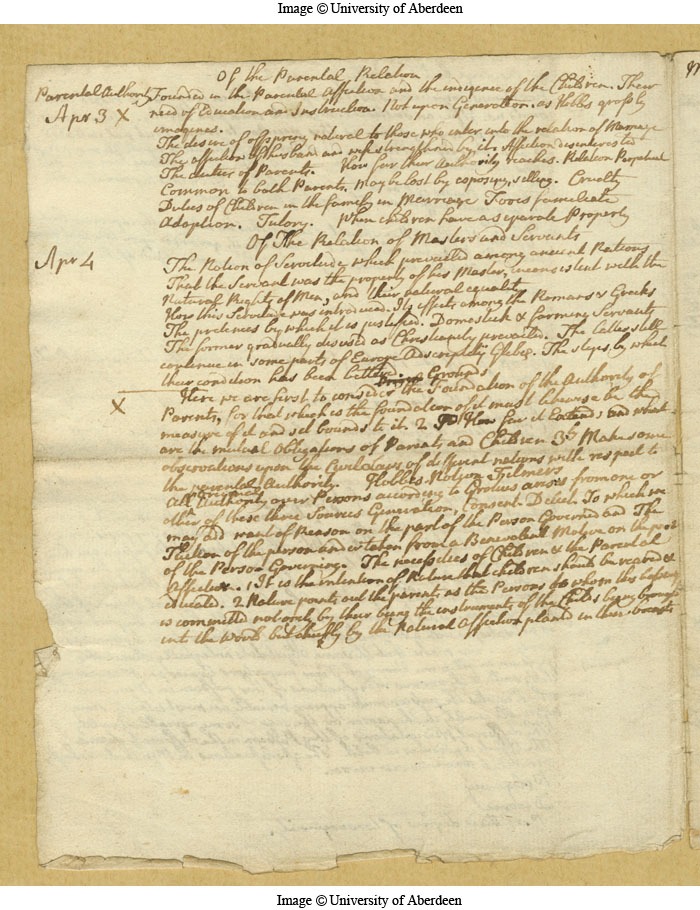 Image © University of Aberdeen
Of the Parental Relation
Parental Authority Founded in the Parental Affection and the indigence of the Children. Their
Apr 3 X need of Education and Instruction. Not upon Generation as Hobbs grossly
imagines.
The desire of offspring natural to those who enter into the relation of Marriage
The affection of husband and wife strengthned by it. Affection disinterested
The duties of Parents. How far their Authority reaches. Relation Perpetual
Common to both Parents. May be lost by exposing, selling. Cruelty
Duties of Children in the family in Marriage Foris familiate
Adoption. Tutory. When children have a separate Property
Of The Relation of Masters and Servants
Apr 4
The Notion of Servitude which prevailed among ancient Nations
That the Servant was the property of his Master, inconsistent with the
Natural Rights of Men, and their natural equality
How this Servitude was introduced. Its effects among the Romans & Greeks
The pretences by which it is justified. Domestick & farming Servants
The former gradually disused as Christianity prevailed. The latter still
continue in some parts of Europe Adscriptitii Glebae. The steps by which
their condition has been bettered. Grounds
X Here we are first to consider the Foundation of the Authority of
Parents, for that which is the foundation of it must likewise be the
measure of it and set bounds to it. 2 How far it Extends and what
are the mutual Obligations of Parents and Children 3ly Make some
observations upon the Civil Laws of different nations with respect to
the parental Authority. Hobbes Notion, Filmers
All Authority over Persons according to Grotius arises from one or
other of these three Sources Generation, Consent Delict. To which we
may add want of Reason on the part of the Person Governed and The
Tuition of the person undertaken from a Benevolent Motive on the part
of the Person Governing. The necessities of Children & the Parental
Affection. 1 It is the intention of Nature that children should be reared &
educated. 2 Nature points out the parents as the Persons to whom this
is committed not only by their being the instruments of the Childs being brought
into the World but chiefly by the Natural Affection planted in their breasts
Image © University of Aberdeen